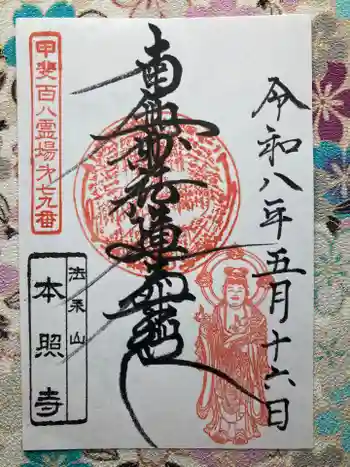 令和八年五月十六日
南無妙法蓮華経
甲斐百八霊場才七九番
本照寺